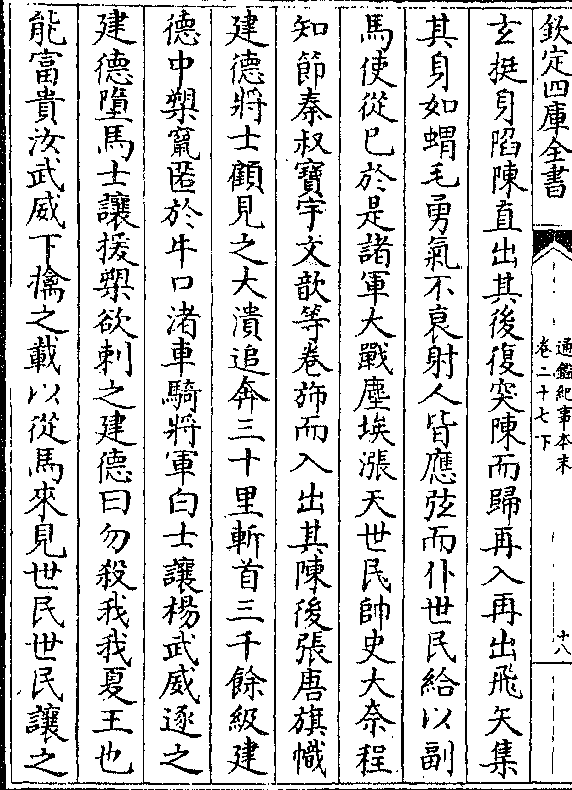 欽定四庫全書
通鑑紀事本末
卷二十七下
十八
玄挺身陷陳直出其後復突陳而歸再入再出飛矢集
其身如蝟毛勇氣不衰射人皆應弦而仆世民給以副
馬使從已於是諸軍大戰塵埃漲天世民帥史大奈程
知節秦叔寶宇文歆等卷斾而入出其陳後張唐旗幟
建德將士顧見之大潰追奔三十里斬首三千餘級建
德中槊竄匿於牛口渚車騎將軍白士讓楊武威逐之
建德墮馬士讓援槊欲刺之建德曰勿殺我我夏王也
能富貴汝武威下擒之載以從馬來見世民世民讓之